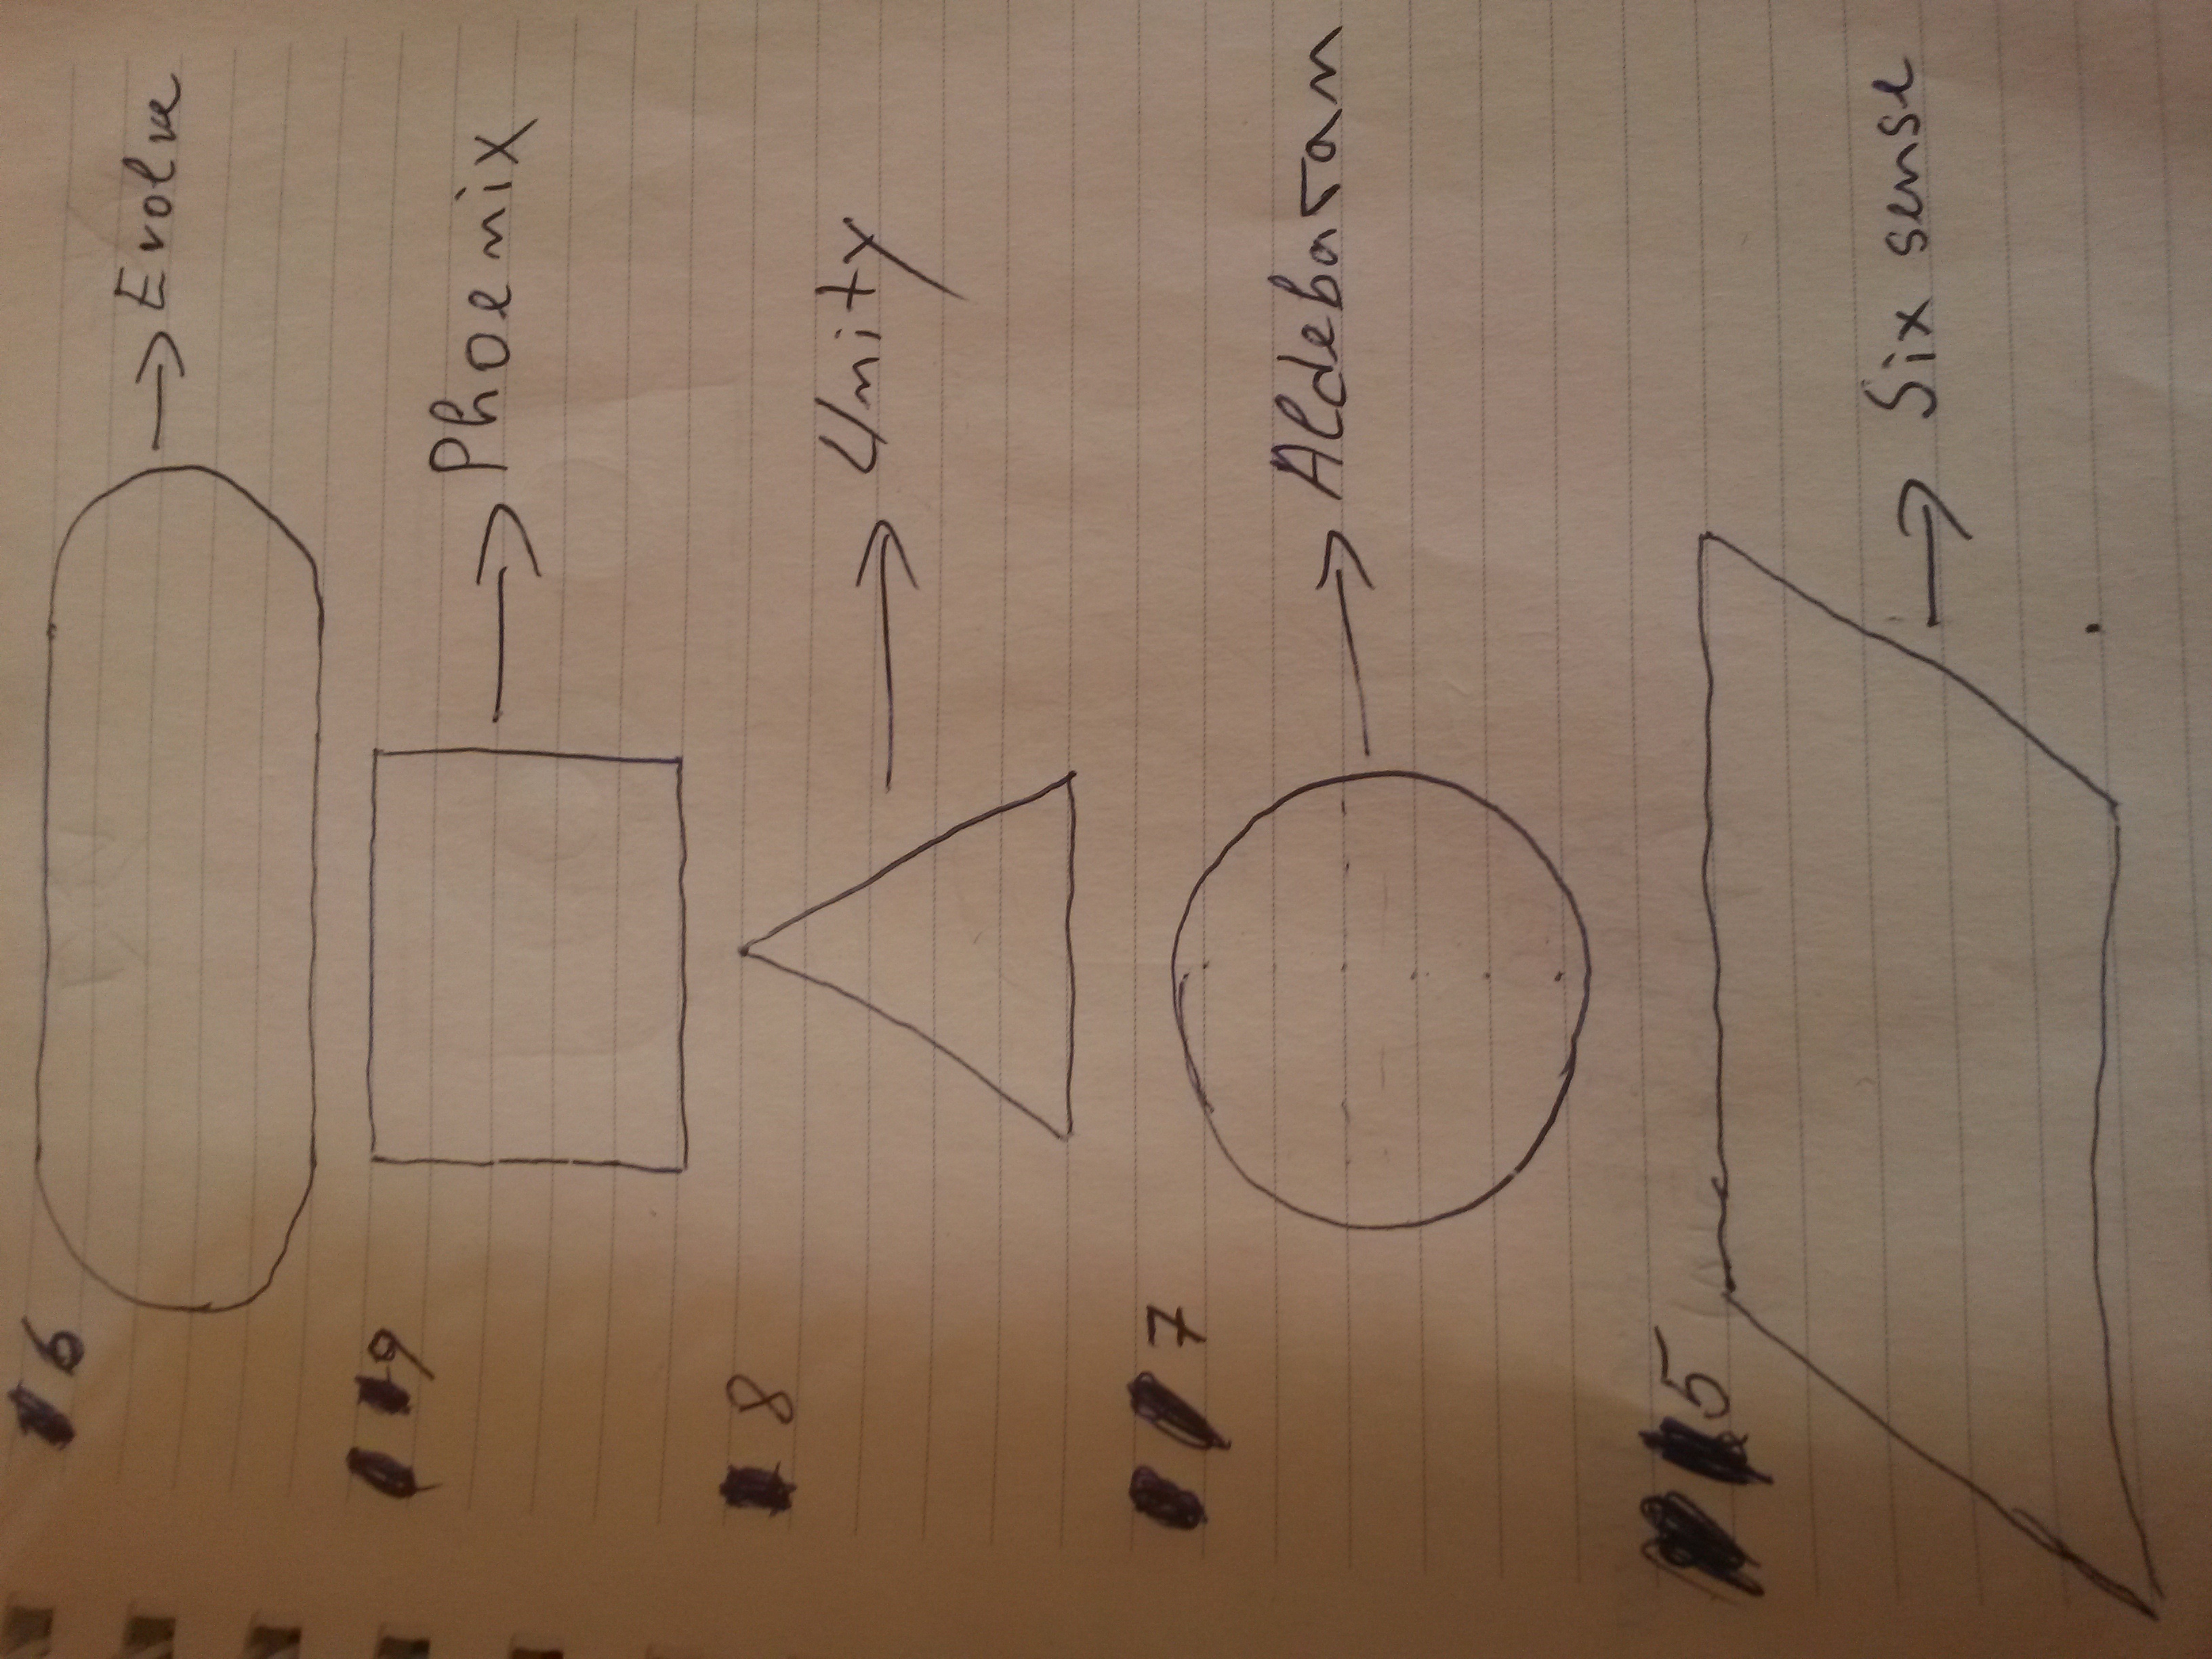 6 → Evolve
9 → Phoenix
8 → Unity
7 → Aldebaran
5 → Six sense